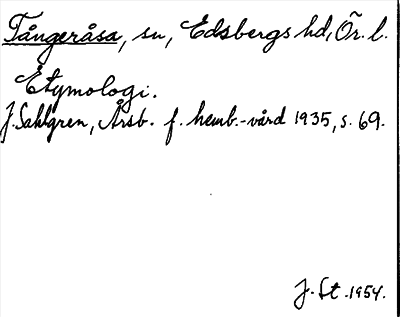 Tångeråsa, sn, Edsbergs hd, Ör. l.
Etymologi.
J. Sahlgren, Årsb. f. hemb.-vård 1935, s. 69.
J. St. 1954.